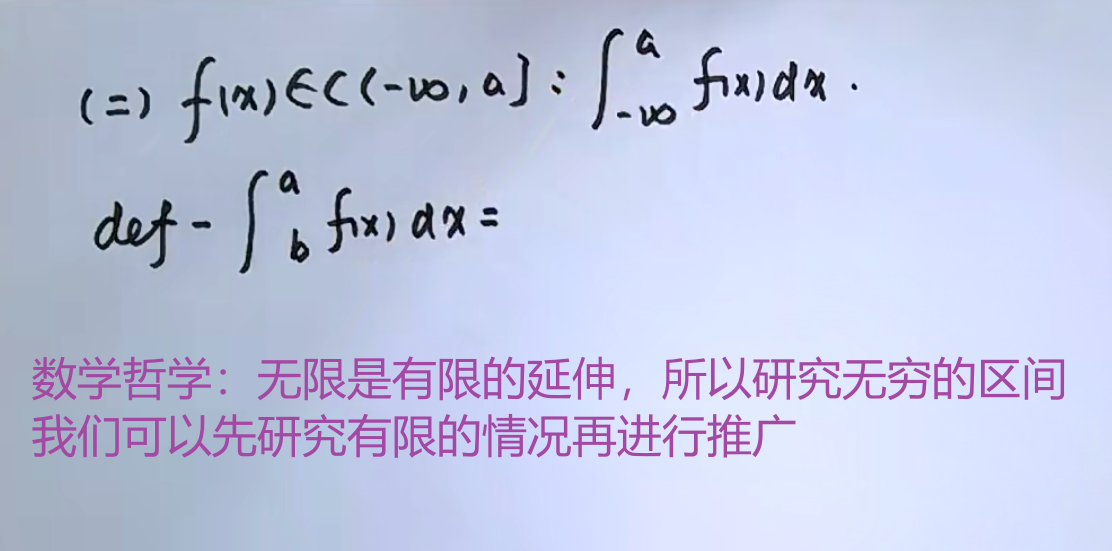 (二) f(x)∈C(-∞,a]:∫_{-∞}^{a} f(x)dx.
def-∫_{b}^{a} f(x)dx=
数学哲学：无限是有限的延伸，所以研究无穷的区间
我们可以先研究有限的情况再进行推广